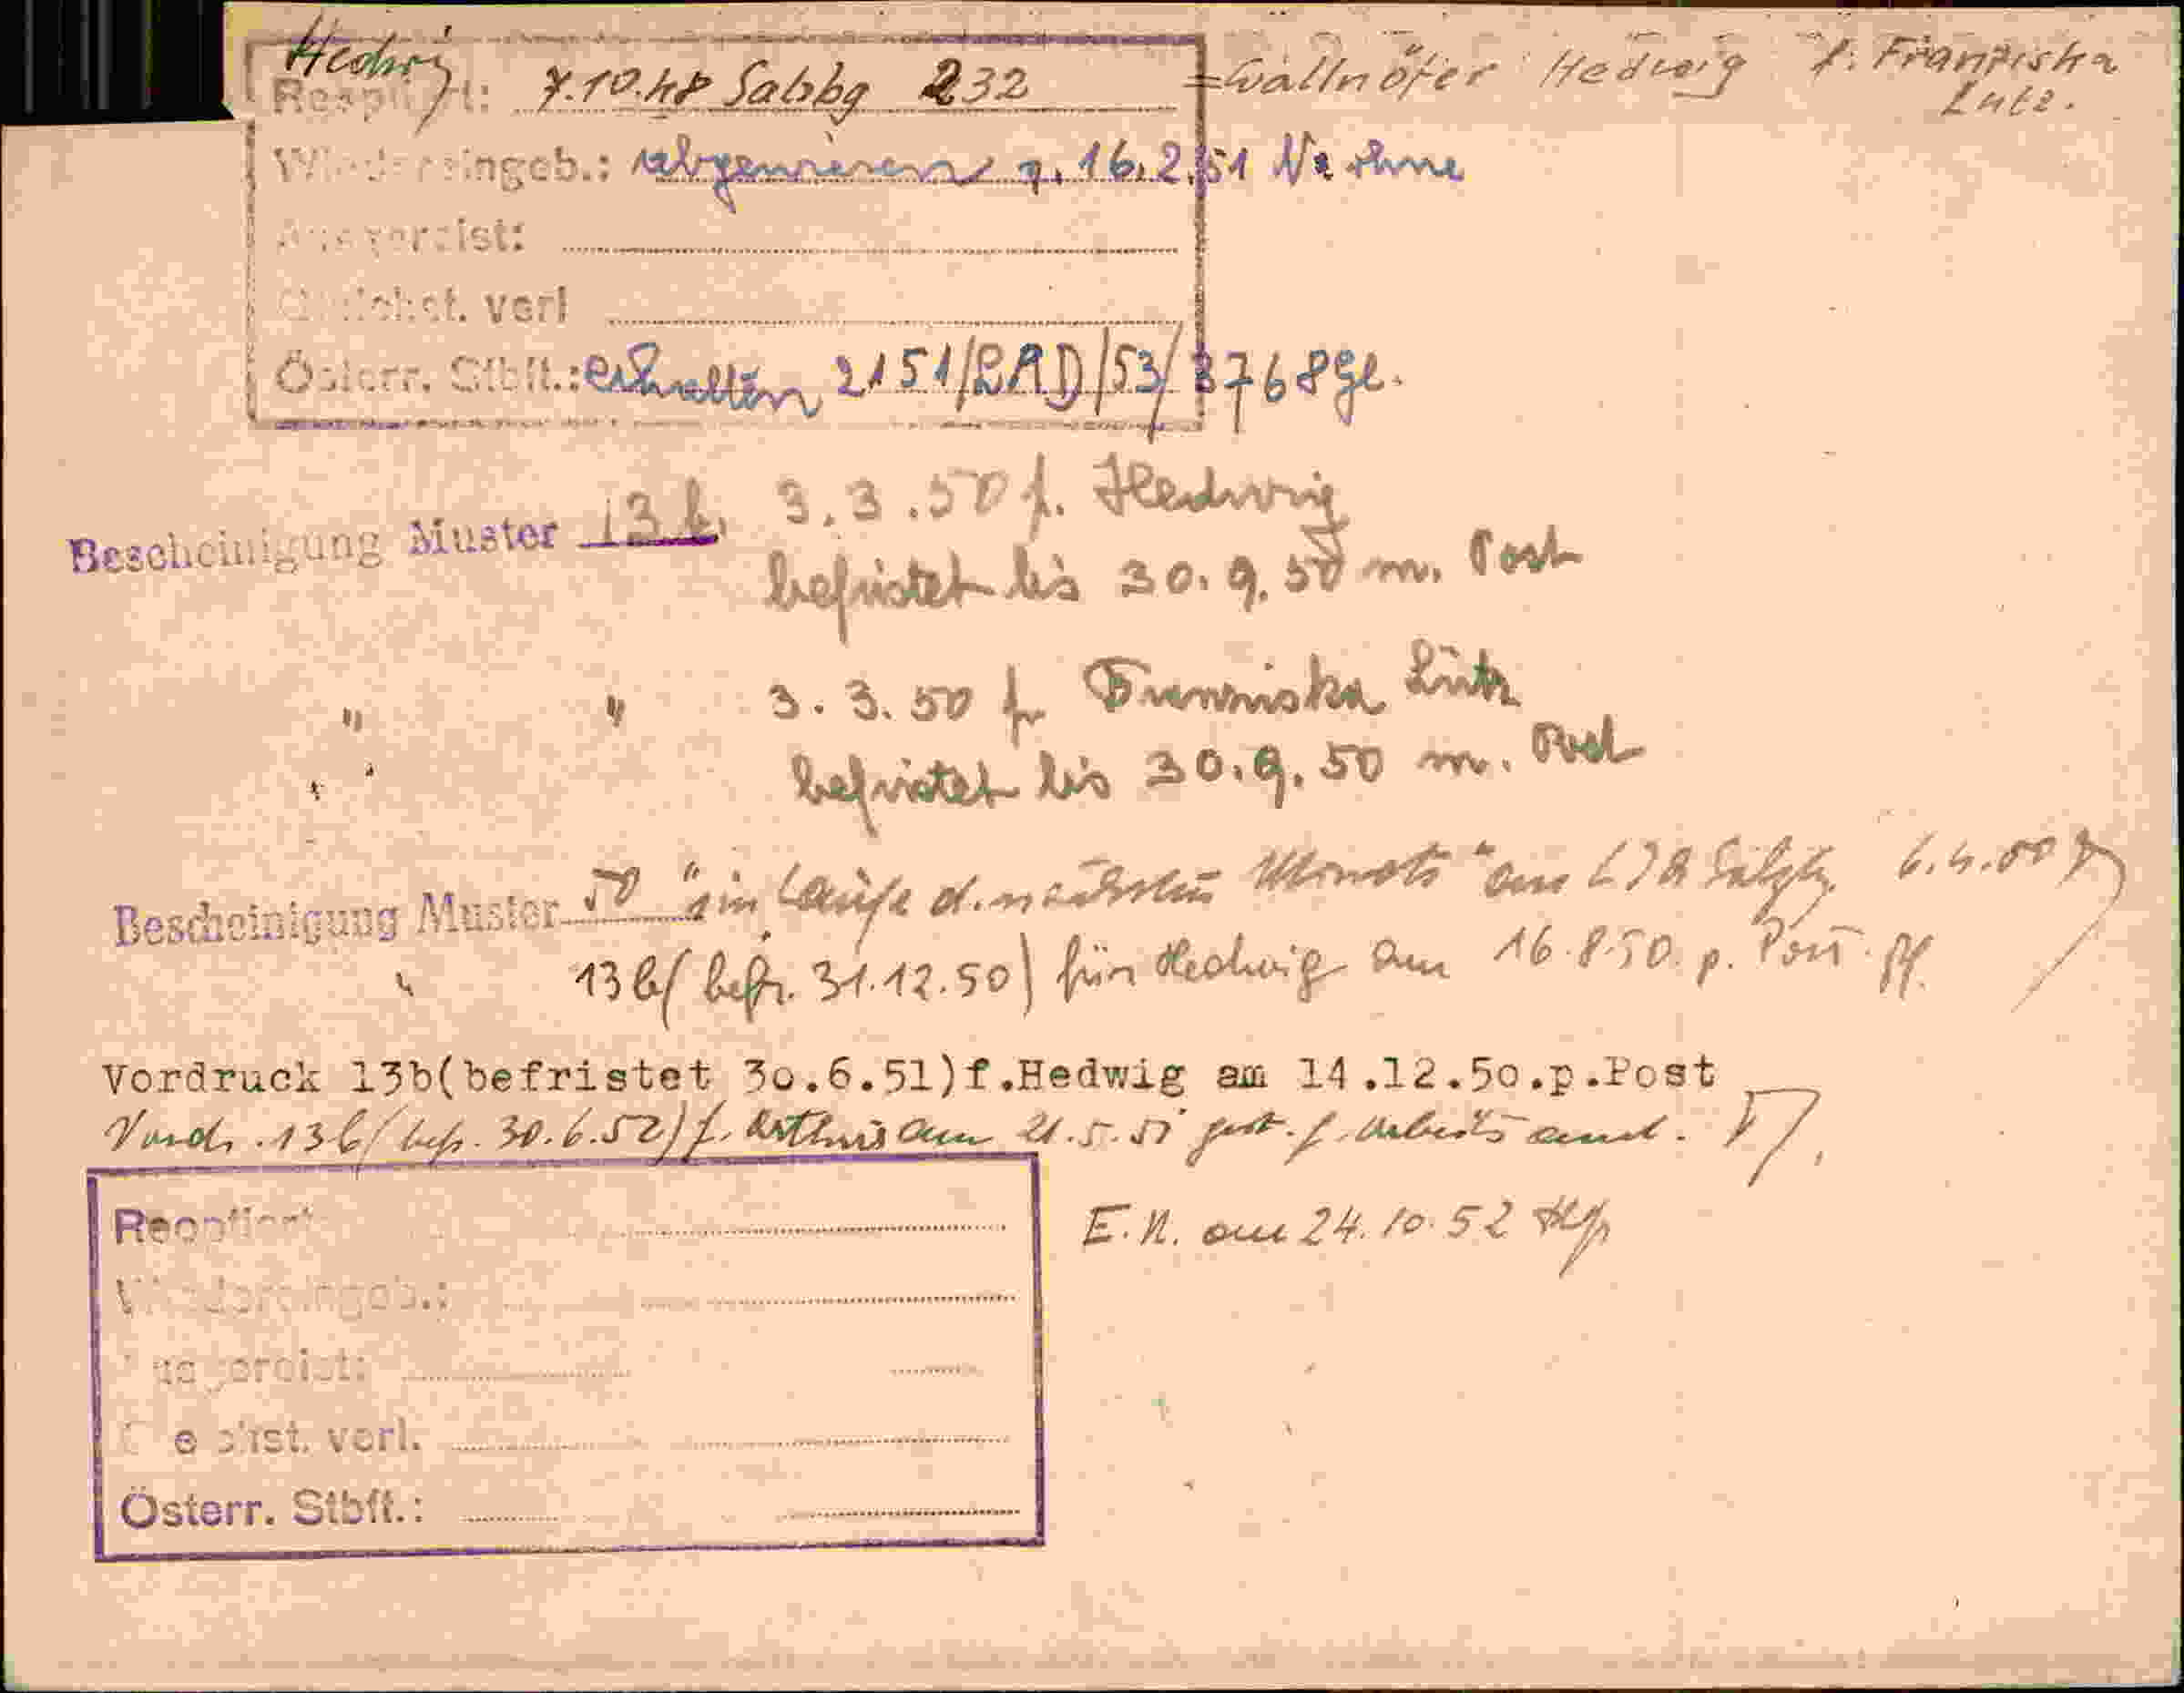 Hedwig
Reoptiert: 7.10.48 Salzbg 232 = Wallnöfer Hedwig f. Franziska Lutz.
Wiedereingeb.: abgewiesen 9.16.2.51 Ve ohne
Ausgereist:
verl
Österr. Stbft.: erhalten 2151/LAD/53/3768 Gl.
Bescheinigung Muster 13 b. 3.3.50 f. Hedwig
befristet bis 30.9.50 m. Post
" " 3.3.50 f. Franziska Lutz
befristet bis 30.9.50 m. Post
Bescheinigung Muster 50 "im Laufe d. nächsten Monats" am Salzbg. 6.4.50
" 13b (befr. 31.12.50) für Hedwig am 16.8.50. p. Post.
Vordruck 13b(befristet 30.6.51)f.Hedwig am 14.12.50.p.Post
Vordr. 13b (befr. 30.6.52) f. am 21.5.51 f. Arbeitsamt.
Reoptiert
E.N. am 24.10.52
Wiedereingeb.:
Ausgereist:
verl.
Österr. Stbft.: